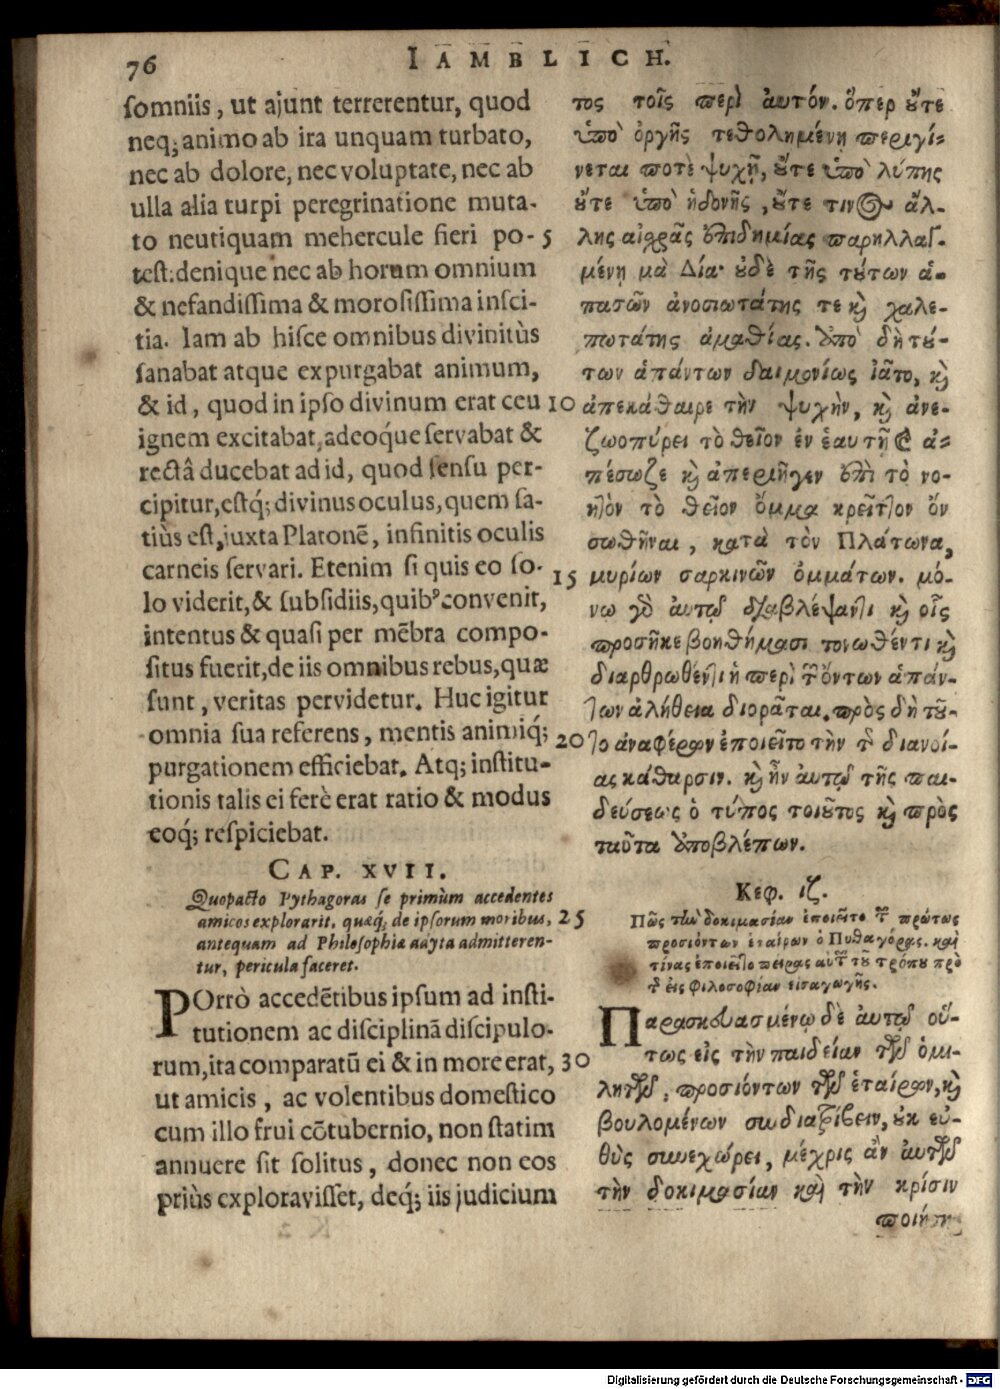 76
IAMBLICH.
somniis, ut ajunt terrerentur, quod
neq; animo ab ira unquam turbato,
nec ab dolore, nec voluptate, nec ab
ulla alia turpi peregrinatione muta-
to neutiquam mehercule fieri po- 5
test: denique nec ab horum omnium
& nefandissima & morosissima insci-
tia. Iam ab hisce omnibus divinitùs
sanabat atque expurgabat animum,
& id, quod in ipso divinum erat ceu 10
ignem excitabat, adeoque servabat &
rectâ ducebat ad id, quod sensu per-
cipitur, estq́; divinus oculus, quem sa-
tiùs est, juxta Platonē, infinitis oculis
carneis servari. Etenim si quis eo so- 15
lo viderit, & subsidiis, quibꝰ convenit,
intentus & quasi per mēbra compo-
situs fuerit, de iis omnibus rebus, quæ
sunt, veritas pervidetur. Huc igitur
omnia sua referens, mentis animiq́; 20
purgationem efficiebat. Atq; institu-
tionis talis ei ferè erat ratio & modus
eoq́; respiciebat.
CAP. XVII.
Quopacto Pythagoras se primùm accedentes
amicos explorarit, quæq́; de ipsorum moribus, 25
antequam ad Philosophiæ adyta admitteren-
tur, pericula faceret.
POrrò accedētibus ipsum ad insti-
tutionem ac disciplinā discipulo-
rum, ita comparatū ei & in more erat, 30
ut amicis, ac volentibus domestico
cum illo frui cōtubernio, non statim
annuere sit solitus, donec non eos
priùs exploravisset, deq́; iis judicium
τος τοῖς περὶ αὐτόν. ὅπερ ὔτε
ὑπὸ ὀργῆς τεθολημένη περιγί-
νεται ποτὲ ψυχῇ, ὔτε ὑπὸ λύπης
ὔτε ὑπὸ ἡδονῆς, ὔτε τινος ἄλ-
λης αἰχρᾶς ἐπιδημίας παρηλλαγ-
μένῃ μὰ Δία· ὐδὲ τῆς τύτων ἁ-
πασῶν ἀνοσιωτάτης τε καὶ χαλε-
πωτάτης ἀμαθίας. ὑπὸ δὴ τύ-
των ἁπάντων δαιμονίως ἰᾶτο, καὶ
ἀπεκάθαιρε τὴν ψυχὴν, καὶ ἀνε-
ζωοπύρει τὸ θεῖον ἐν ἑαυτῇ καὶ ἀ-
πέσωζε καὶ ἀπεριῆγεν ἐπὶ τὸ νο-
ητὸν τὸ θεῖον ὄμμα κρεῖττον ὂν
σωθῆναι, κατὰ τὸν Πλάτωνα,
μυρίων σαρκινῶν ὀμμάτων. μό-
νῳ γὰρ αὐτῷ διαβλέψαντι καὶ οἷς
προσῆκε βοηθήμασι τονωθέντι καὶ
διαρθρωθέντι ἡ περὶ τῶν ὄντων ἁπάν-
των ἀλήθεια διορᾶται. πρὸς δὴ τῦ-
το ἀναφέρων ἐποιεῖτο τὴν τῆς διανοί-
ας κάθαρσιν. καὶ ἦν αὐτῷ τῆς παι-
δεύσεως ὁ τύπος τοιῦτος καὶ πρὸς
ταῦτα ὑποβλέπων.
Κεφ. ιζ.
Πῶς τὴν δοκιμασίαν ἐποιεῖτο τῶν πρώτως
προσιόντων ἑταίρων ὁ Πυθαγόρας. καὶ
τίνας ἐποιεῖτο πείρας αὐτῶν τῦ τρόπυ πρὸ
τῆς εἰς φιλοσοφίαν εἰσαγωγῆς.
Παρασκευασμένῳ δὲ αὐτῷ οὕ-
τως εἰς τὴν παιδείαν τῶν ὁμι-
λητῶν, προσιόντων τῶν ἑταίρων, καὶ
βουλομένων συνδιατρίβειν, ὐκ εὐ-
θὺς συνεχώρει, μέχρις ἂν αὐτῶν
τὴν δοκιμασίαν καὶ τὴν κρίσιν
ποιήση-
Digitalisierung gefördert durch die Deutsche Forschungsgemeinschaft - DFG